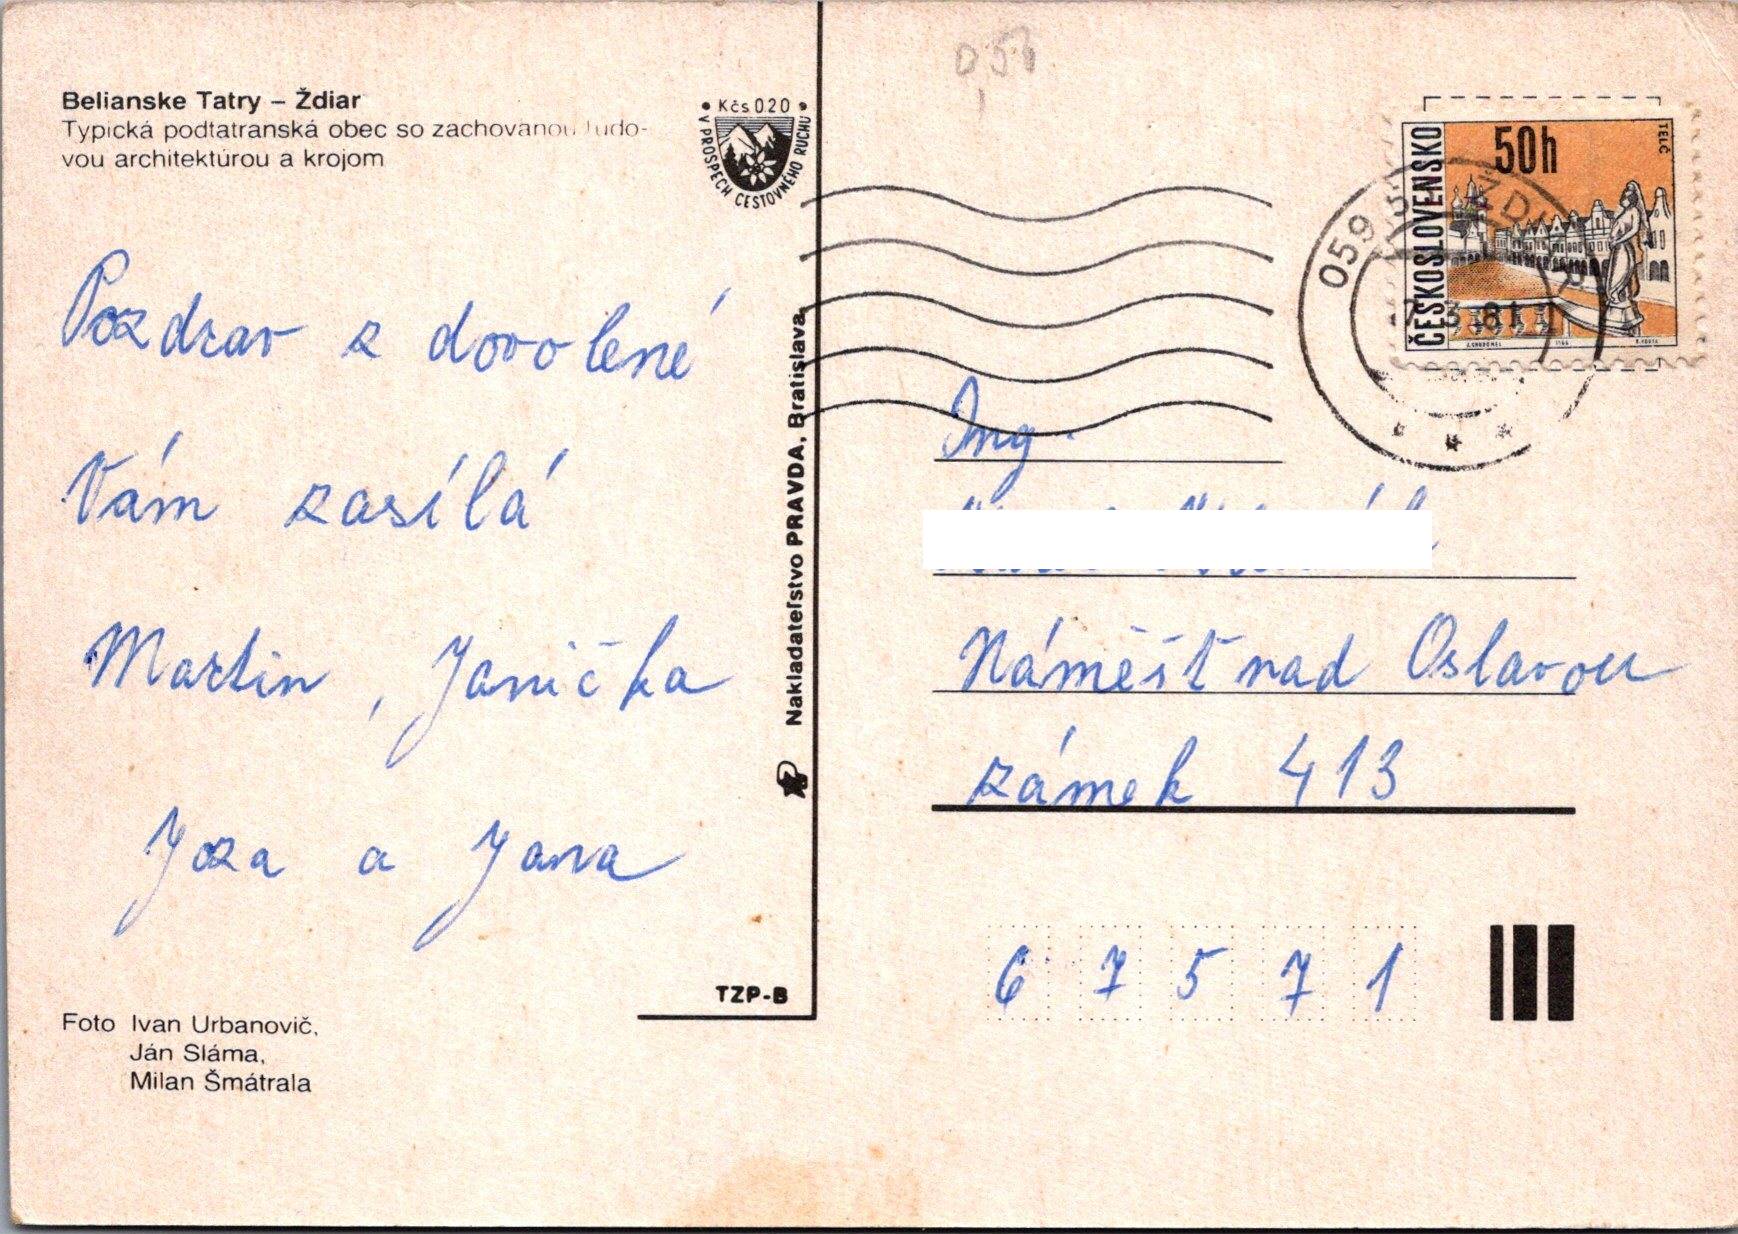 Belianske Tatry – Ždiar
Typická podtatranská obec so zachovanou ľudo-
vou architektúrou a krojom
• Kčs 020 •
V PROSPECH CESTOVNÉHO RUCHU
Pozdrav z dovolené
Vám zasílá
Martin, Janička
Joza a Jana
Foto Ivan Urbanovič,
Ján Sláma,
Milan Šmátrala
TZP-B
Nakladateľstvo PRAVDA, Bratislava
ČESKOSLOVENSKO
50h
TELČ
1966
059 ŽDIAR
-7.3.81
Ing.
Náměšť nad Oslavou
zámek 413
67571